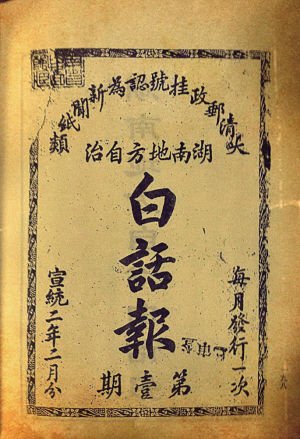 大清郵政挂號認為新聞紙類
湖南地方自治
白話報
每月發行一次
第壹期
宣統二年二月分